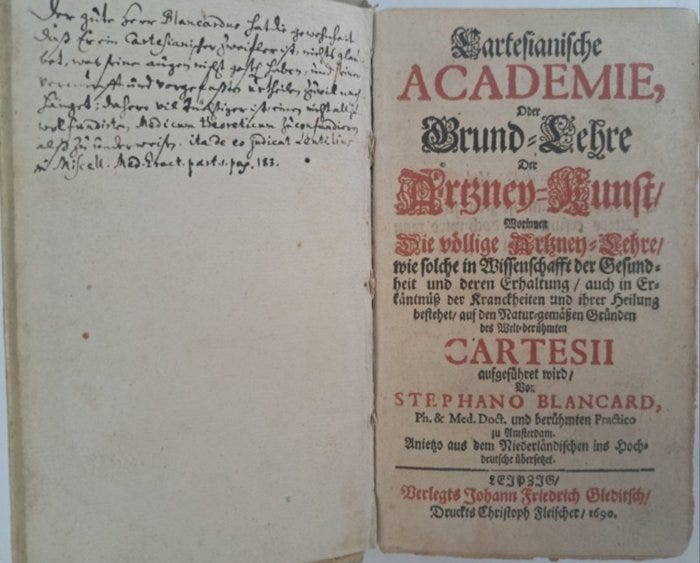 Der gute Herr Blancardus hat die gewohnheit
daß Er ein Cartesianischer zweifler ist, nichts glau-
bet, was seine augen nicht gesehen haben, und seiner
vernunfft und vorgefaßten urtheilen zuviel nach
hänget: dahero viel
Medicum theoreticum zu confundiren
alß zu underweisen. ita de eo judicat Lentilius
in Miscell. Med. Pract. part. 1. pag. 183.
Cartesianische
ACADEMIE,
Oder
Grund-Lehre
Der
Artzney-Kunst/
Worinnen
Die völlige Artzney-Lehre/
wie solche in Wissenschafft der Gesund-
heit und deren Erhaltung / auch in Er-
käntnüß der Kranckheiten und ihrer Heilung
bestehet/ auf den Natur-gemäßen Gründen
des Welt-berühmten
CARTESII
aufgeführet wird/
Von
STEPHANO BLANCARD,
Ph. & Med. Doct. und berühmten Practico
zu Amsterdam.
Anietzo aus dem Niederländischen ins Hoch-
deutsche übersetzet.
LEIPZIG/
Verlegts Johann Friedrich Gleditsch/
Druckts Christoph Fleischer/ 1690.